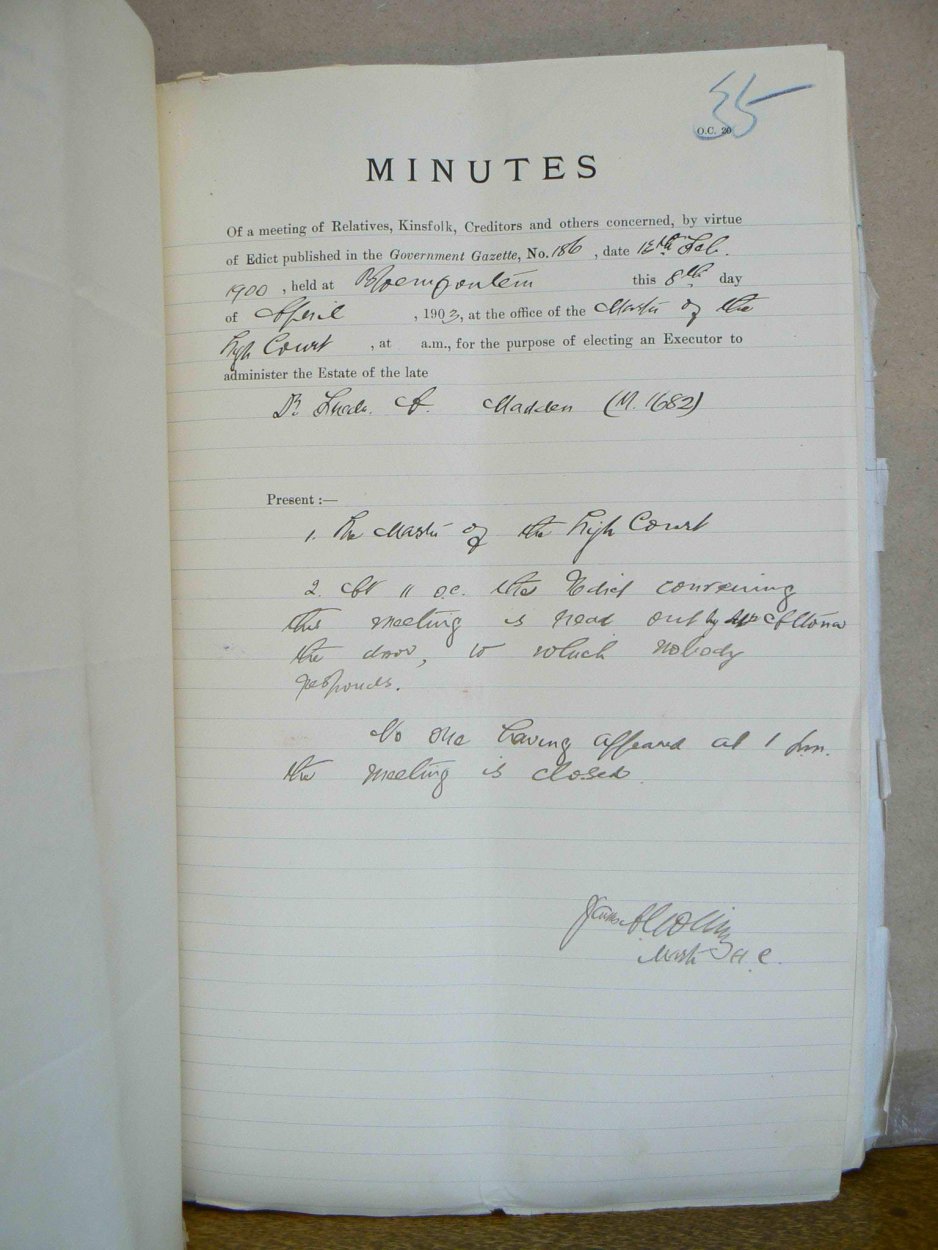 35
O.C. 20
MINUTES
Of a meeting of Relatives, Kinsfolk, Creditors and others concerned, by virtue
of Edict published in the Government Gazette, No. 186 , date 12th Feb.
1900 , held at Bloemfontein this 8th day
of April , 1903, at the office of the Master of the
High Court , at a.m., for the purpose of electing an Executor to
administer the Estate of the late
Dr. A. Madden (M. 1682)
Present :—
1. The Master of the High Court
2. At 11 o.c. the Edict convening
this meeting is read out by
the door, to which nobody
responds.
No one having appeared at 1 p.m.
the meeting is closed.
Master H.C.